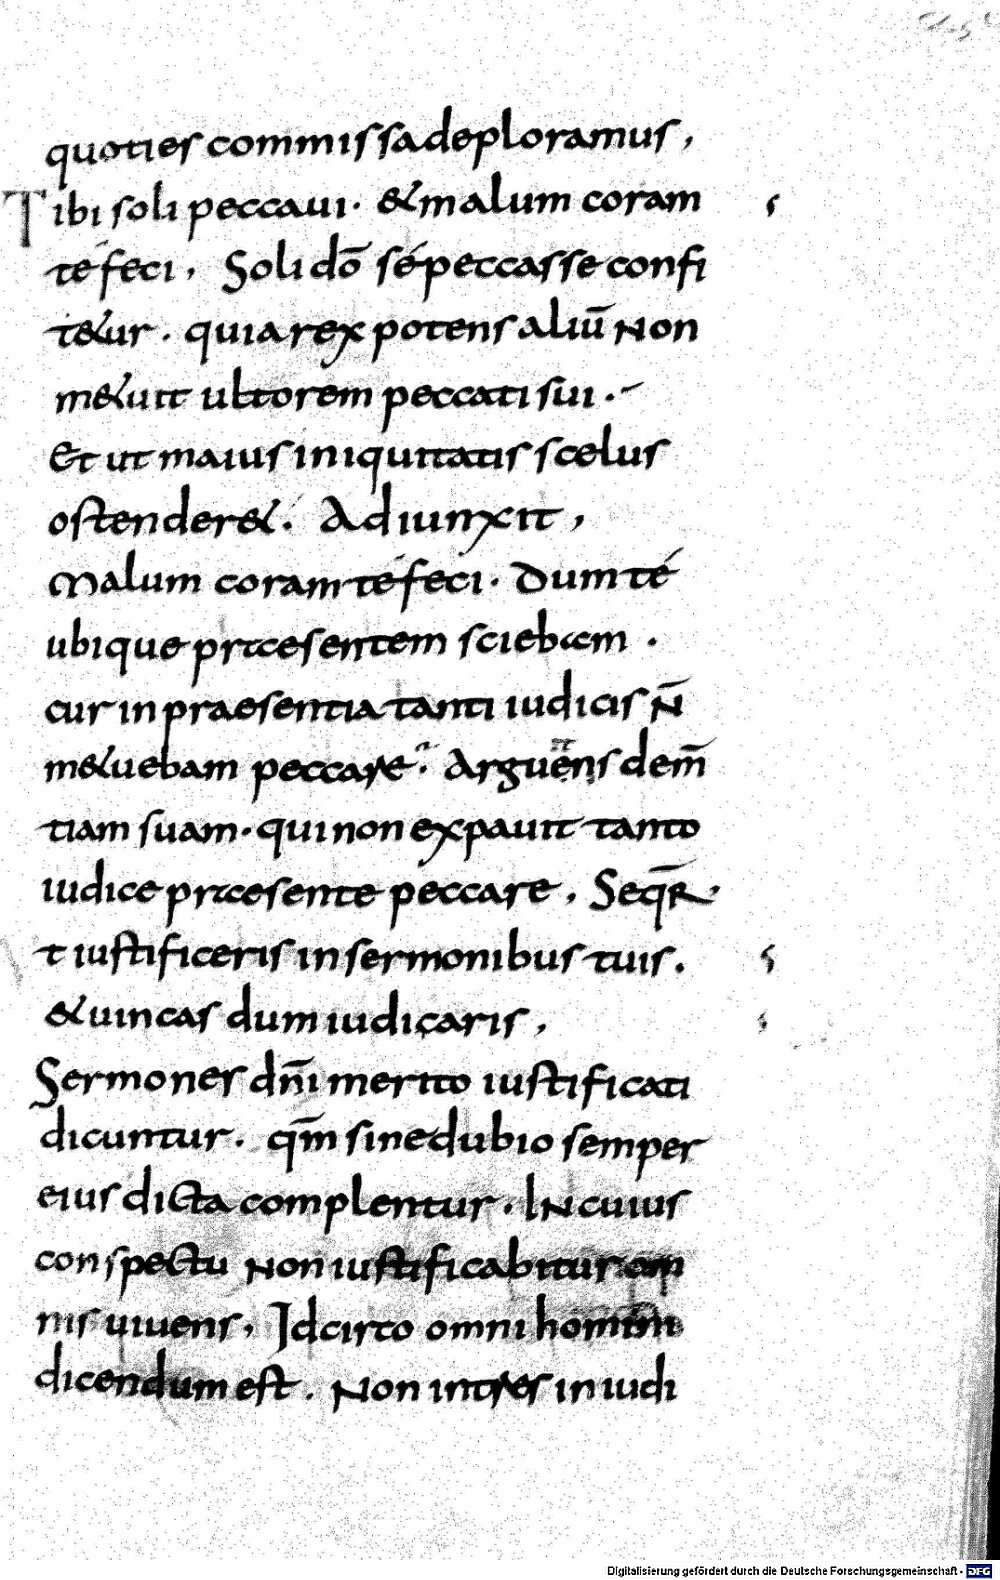 quoties commissa deploramus,
Tibi soli peccaui. & malum coram
té feci, Soli dō sé peccasse confi
t&ur. quia rex potens aliū non
m&uit ultorem peccati sui.
Et ut maius iniquitatis scelus
ostender&. Adiunxit,
Malum coram té feci. Dum té
ubique praesentem sciebam.
cur in praesentia tanti iudicis n̄
m&uebam peccare. Arguens dem̄
tiam suam. qui non expauit tanto
iudice praesente peccare, Seqr̄
t iustificeris in sermonibus tuis.
& uincas dum iudicaris,
Sermones dn̄i merito iustificati
dicuntur. qm̄ sine dubio semper
eius dicta complentur. In cuius
conspectu non iustificabitur om
nis uiuens, Idcirco omni homini
dicendum est. Non intres in iudi
Digitalisierung gefördert durch die Deutsche Forschungsgemeinschaft - DFG